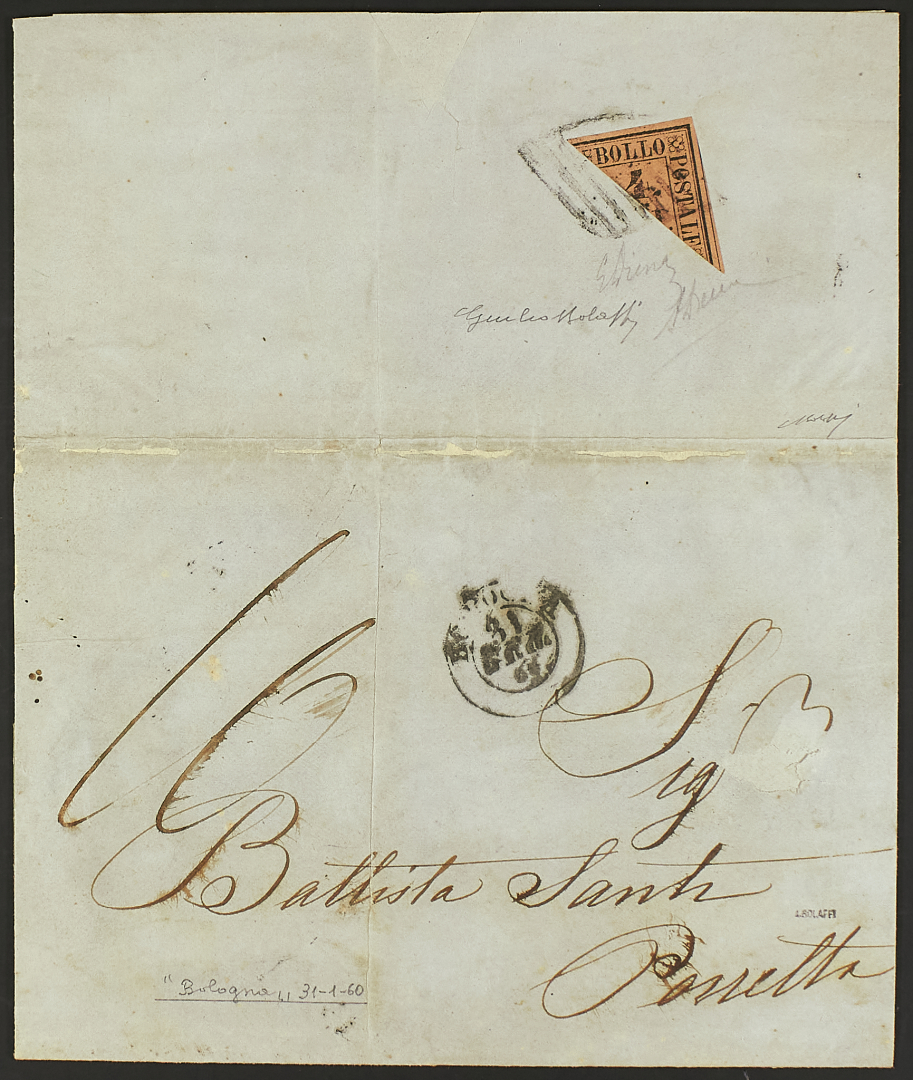 BOLLO
POSTALE
Giulio Bolaffi
31
GEN
60
Sig
Battista Santi
A.BOLAFFI
Porretta
"Bologna„ 31-1-60